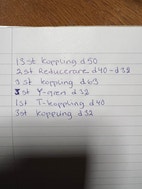 13st Koppling d50
2st Reducerare d40-d32
3st koppling d63
3st Y-gren d32
1st T-koppling d40
3st koppling d32